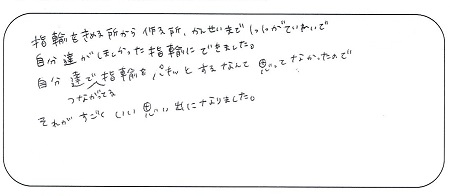 指輪をきめる所から作る所、かんせいまで しっかりがていねいで
自分達がほしかった指輪にできました。
自分達で 指輪を パキッと するなんて 思ってなかったので
つながってる
それが すごく いい 思い出になりました。